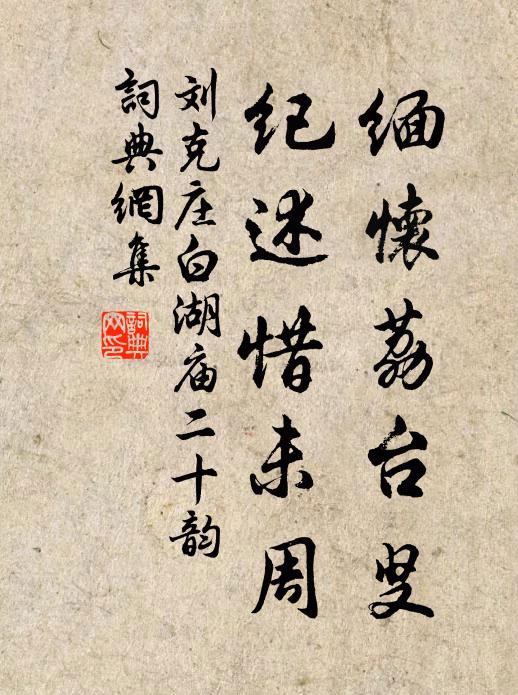 缅懷荔台叟
纪述惜未周
刘克庄白湖庙二十韵
詞典網集
詞典网印